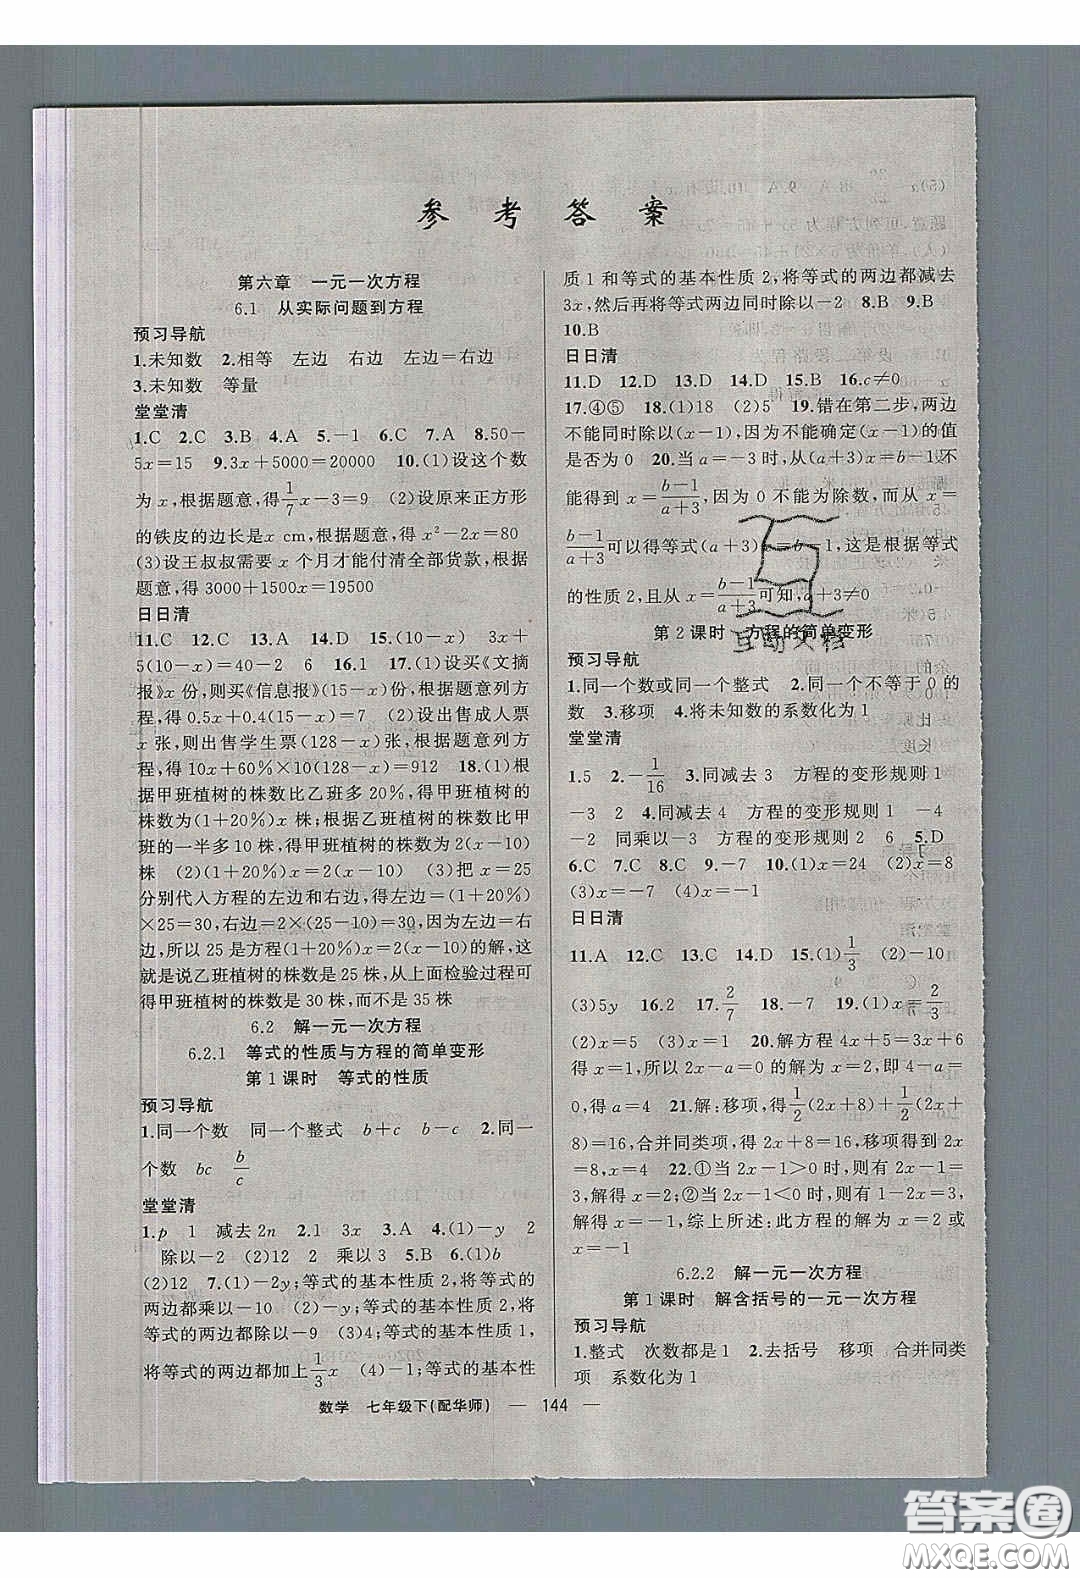 参考答案
第六章　一元一次方程
6.1　从实际问题到方程
预习导航
1.未知数　2.相等　左边　右边　左边＝右边
3.未知数　等量
堂堂清
1.C　2.C　3.B　4.A　5.－1　6.C　7.A　8.50－
5x＝15　9.3x＋5000＝20000　10.(1)设这个数
为 x,根据题意,得1/7x－3＝9　(2)设原来正方形
的铁皮的边长是x cm,根据题意,得 x²－2x＝80
(3)设王叔叔需要 x 个月才能付清全部货款,根据
题意,得 3000＋1500x＝19500
日日清
11.C　12.C　13.A　14.D　15.(10－x)　3x＋
5(10－x)＝40－2　6　16.1　17.(1)设买《文摘
报》x 份,则买《信息报》(15－x)份,根据题意列方
程,得 0.5x＋0.4(15－x)＝7　(2)设出售成人票
x 张,则出售学生票(128－x)张,根据题意列方
程,得 10x＋60%×10(128－x)＝912　18.(1)根
据甲班植树的株数比乙班多 20%,得甲班植树的
株数为(1＋20%)x 株；根据乙班植树的株数比甲
班的一半多 10 株,得甲班植树的株数为 2(x－10)
株　(2)(1＋20%)x＝2(x－10)　(3)把 x＝25
分别代入方程的左边和右边,得左边＝(1＋20%)
×25＝30,右边＝2×(25－10)＝30,因为左边＝右
边,所以 25 是方程(1＋20%)x＝2(x－10)的解,这
就是说乙班植树的株数是 25 株,从上面检验过程可
得甲班植树的株数是 30 株,而不是 35 株
6.2　解一元一次方程
6.2.1　等式的性质与方程的简单变形
第 1 课时　等式的性质
预习导航
1.同一个数　同一个整式　b＋c　b－c　2.同一
个数　bc　b/c
堂堂清
1.p　1　减去 2n　2.1　3x　3.A　4.(1)－y　2
除以－2　(2)12　2　乘以 3　5.B　6.(1)b
(2)12　7.(1)－2y；等式的基本性质 2,将等式的
两边都乘以－10　(2)－y；等式的基本性质 2,将
等式的两边都除以－9　(3)4；等式的基本性质 1,
将等式的两边都加上1/3x　(4)－1；等式的基本性
质 1 和等式的基本性质 2,将等式的两边都减去
3x,然后再将等式两边同时除以－2　8.B　9.B
10.B
日日清
11.D　12.D　13.D　14.D　15.B　16.c≠0
17.④⑤　18.(1)18　(2)5　19.错在第二步,两边
不能同时除以(x－1),因为不能确定(x－1)的值
是否为 0　20.当 a＝－3 时,从(a＋3)x＝b－1不
能得到 x＝(b－1)/(a＋3),因为 0 不能为除数,而从 x＝
(b－1)/(a＋3)可以得等式(a＋3)x＝b－1,这是根据等式
的性质 2,且从 x＝(b－1)/(a＋3)可知,a＋3≠0
第 2 课时　方程的简单变形
预习导航
1.同一个数或同一个整式　2.同一个不等于 0 的
数　3.移项　4.将未知数的系数化为 1
堂堂清
1.5　2.－1/16　3.同减去 3　方程的变形规则 1
－3　2　4.同减去 4　方程的变形规则 1　－4
－2　同乘以－3　方程的变形规则 2　6　5.D
6.C　7.C　8.C　9.C　10.(1)x＝24　(2)x＝8
(3)x＝－7　(4)x＝－1
日日清
11.A　12.C　13.C　14.D　15.(1)1/3　(2)－10
(3)5y　16.2　17.2/7　18.－7　19.(1)x＝2/3
(2)x＝5　(3)x＝1　20.解方程 4x＋5＝3x＋
6,得 x＝1,所以 2x－a＝0 的解为 x＝2,即 4－a＝
0,得 a＝4　21.解:移项,得1/2(2x＋8)＋1/2(2x＋
8)＝16,合并同类项,得 2x＋8＝16,移项得到 2x
＝8,x＝4　22.①当 2x－1＞0 时,则有 2x－1＝
3,解得 x＝2；②当 2x－1＜0 时,则有 2x－1＝－3,
解得 x＝－1,综上所述:此方程的解为 x＝2 或
x＝－1
6.2.2　解一元一次方程
第 1 课时　解含括号的一元一次方程
预习导航
1.整式　次数都是 1　2.去括号　移项　合并同类
项　系数化为 1
数学　七年级下(配华师)　— 144 —
互动文档
答案圈
MXQE.COM